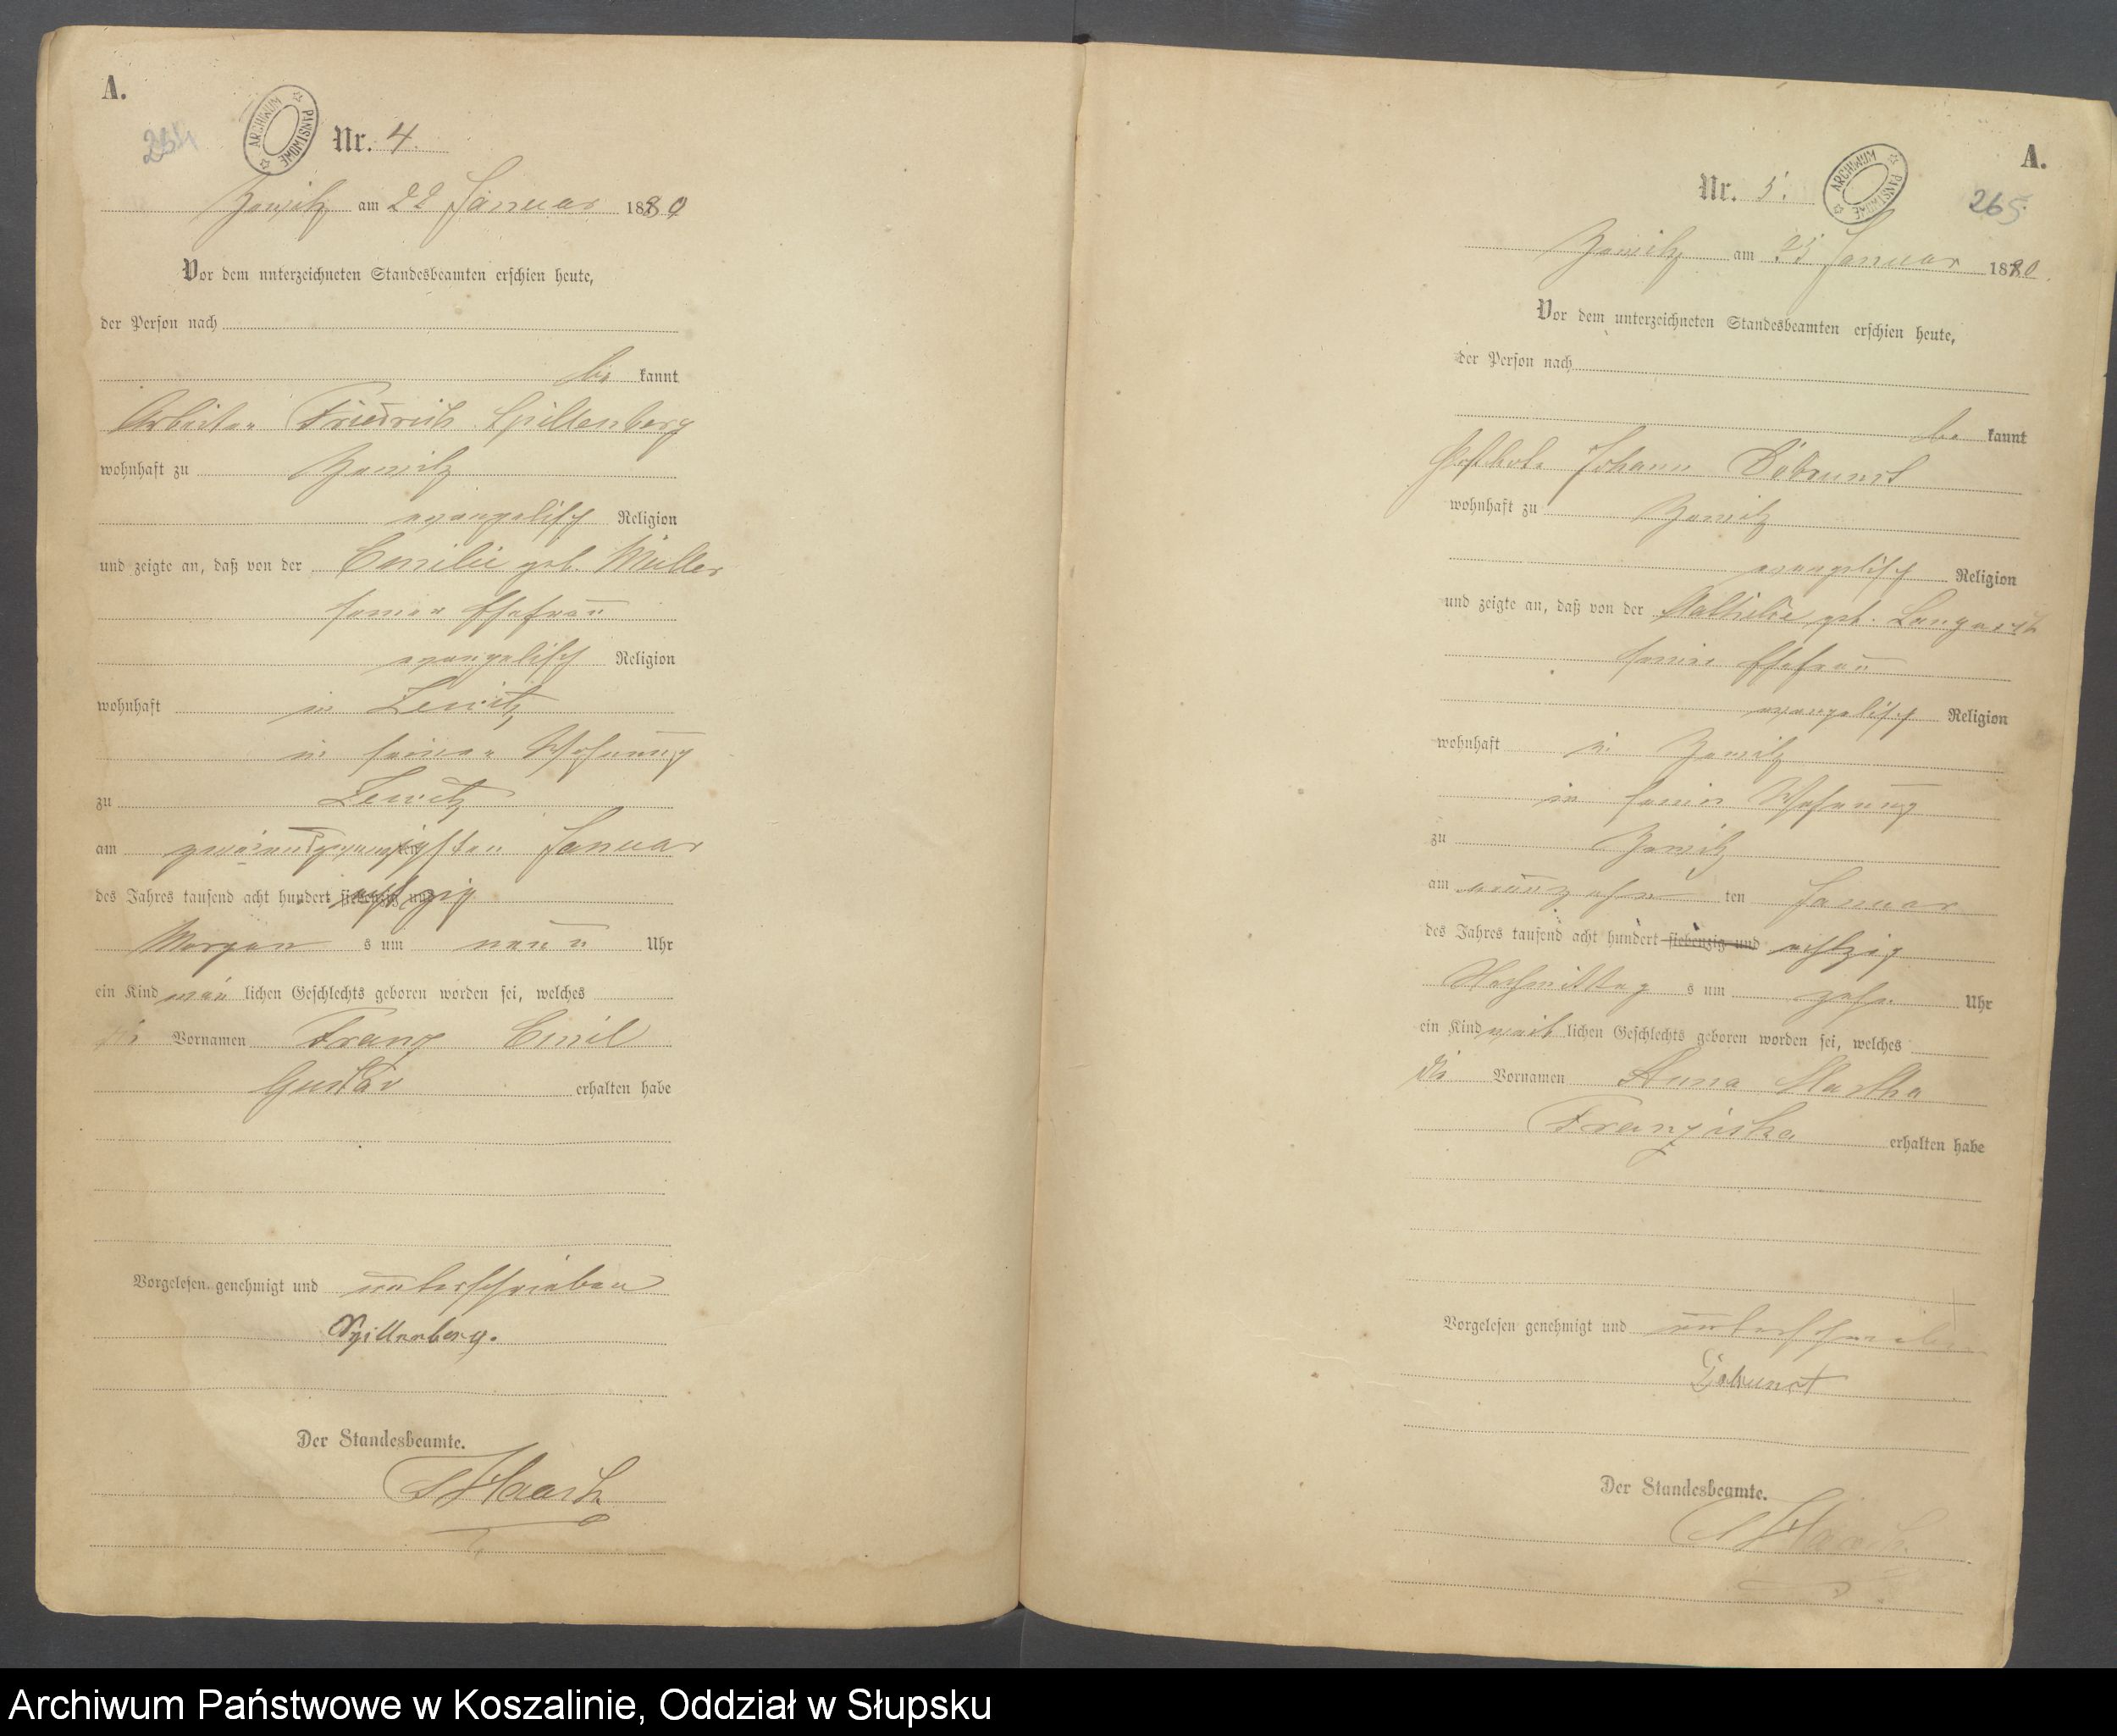 A.
264
ARCHIWUM PAŃSTWOWE
Nr. 4.
Zewitz am 22 Januar 1880
Vor dem unterzeichneten Standesbeamten erschien heute,
der Person nach
be kannt
Arbeiter Friedrich Spillenberg
wohnhaft zu Zewitz
evangelisch Religion
und zeigte an, daß von der Emilie geb. Müller
seiner Ehefrau
evangelisch Religion
wohnhaft in Zewitz
in seiner Wohnung
zu Zewitz
am zweiundzwanzigsten Januar
des Jahres tausend acht hundert siebenzig und achtzig
Morgen s um neun Uhr
ein Kind män lichen Geschlechts geboren worden sei, welches
die Vornamen Franz Emil
Gustav erhalten habe
Vorgelesen, genehmigt und unterschrieben
Spillenberg.
Der Standesbeamte.
Haack
A.
Nr. 5.
ARCHIWUM PAŃSTWOWE
265
Zewitz am 25 Januar 1880.
Vor dem unterzeichneten Standesbeamten erschien heute,
der Person nach
be kannt
Postbote Johann
wohnhaft zu Zewitz
evangelisch Religion
und zeigte an, daß von der Mathilde geb.
seiner Ehefrau
evangelisch Religion
wohnhaft in Zewitz
in seiner Wohnung
zu Zewitz
am neunzehn ten Januar
des Jahres tausend acht hundert siebenzig und achtzig
Nachmittag s um zehn Uhr
ein Kind weib lichen Geschlechts geboren worden sei, welches
die Vornamen Anna Martha
Franziska erhalten habe
Vorgelesen genehmigt und unterschrieben
Der Standesbeamte.
Haack
Archiwum Państwowe w Koszalinie, Oddział w Słupsku